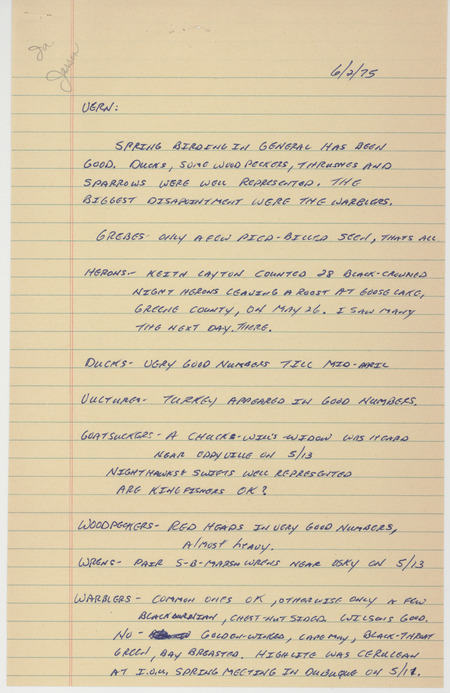 Ia
Jensen
6/2/75
VERN:
SPRING BIRDING IN GENERAL HAS BEEN
GOOD. DUCKS, SOME WOODPECKERS, THRUSHES AND
SPARROWS WERE WELL REPRESENTED. THE
BIGGEST DISAPOINTMENT WERE THE WARBLERS.
GREBES- ONLY A FEW PIED-BILLED SEEN, THATS ALL
HERONS- KEITH LAYTON COUNTED 28 BLACK-CROWNED
NIGHT HERONS LEAVING A ROOST AT GOOSE LAKE,
GREENE COUNTY, ON MAY 26. I SAW MANY
THE NEXT DAY. THERE.
DUCKS- VERY GOOD NUMBERS TILL MID-APRIL
VULTURES- TURKEY APPEARED IN GOOD NUMBERS.
GOATSUCKERS- A CHUCKS-WILL'S-WIDOW WAS HEARD
NEAR EDDYVILLE ON 5/13
NIGHTHAWKS & SWIFTS WELL REPRESENTED
ARE KINGFISHERS OK?
WOODPECKERS- RED HEADS IN VERY GOOD NUMBERS,
ALMOST HEAVY.
WRENS- PAIR S-B-MARSH WRENS NEAR OSKY ON 5/13
WARBLERS- COMMON ONES OK, OTHERWISE ONLY A FEW
BLACKBURNIAN, CHESTNUT SIDED. WILSONS GOOD.
NO- GOLDEN-WINGED, CAPE MAY, BLACK-THROAT
GREEN, BAY BREASTED. HIGHLITE WAS CERULEAN
AT I.O.U. SPRING MEETING IN DUBUQUE ON 5/17.